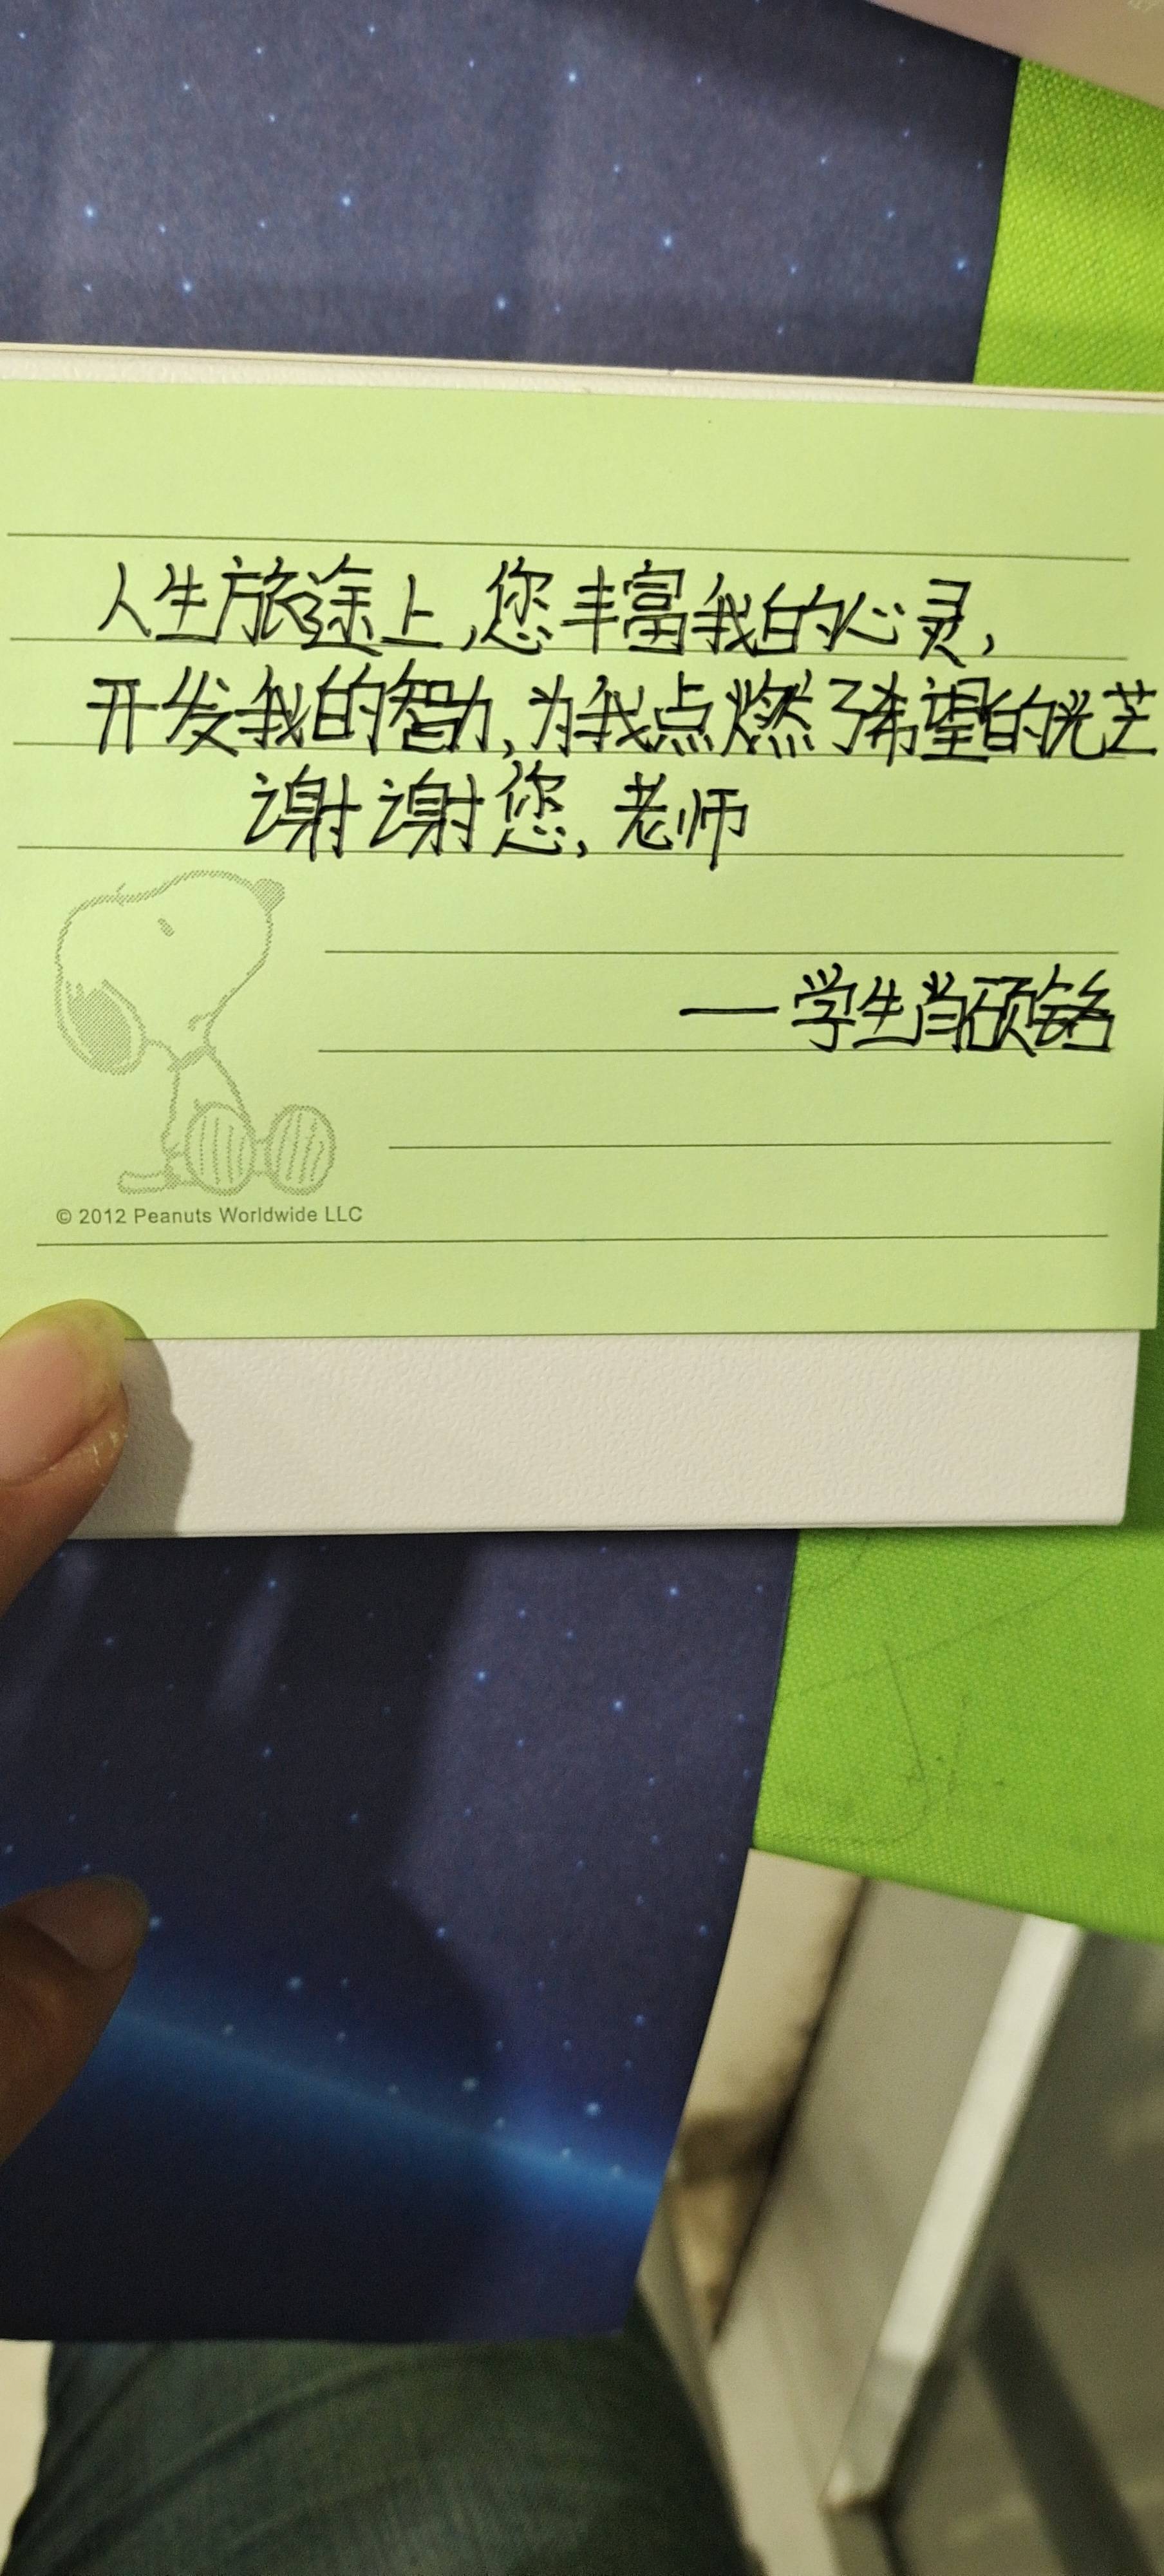 人生旅途上,您丰富我的心灵,
开发我的智力,为我点燃了希望的光芒
谢谢您,老师
—学生肖硕铭
© 2012 Peanuts Worldwide LLC